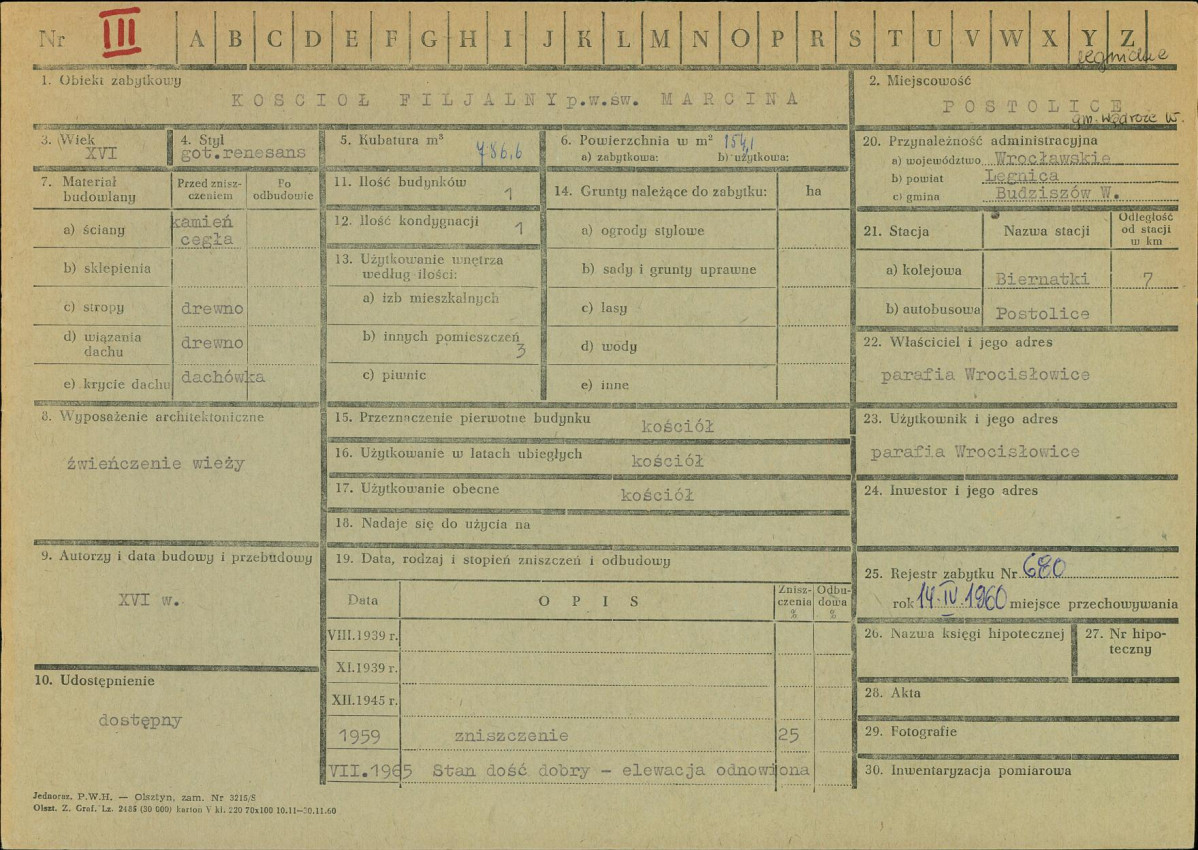 Nr III A B C D E F G H I J K L M N O P R S T U V W X Y Z
legnickie
1. Obiekt zabytkowy
KOSCIOŁ FILJALNY p.w.św. MARCINA
2. Miejscowość
POSTOLICE
gm. Wądroże W.
3. Wiek
XVI
4. Styl
got.renesans
5. Kubatura m³
786,6
6. Powierzchnia w m² 154,1
a) zabytkowa: b) użytkowa:
7. Materiał budowlany
Przed zniszczeniem
Po odbudowie
a) ściany
kamień
cegła
b) sklepienia
c) stropy drewno
d) wiązania dachu drewno
e) krycie dachu dachówka
8. Wyposażenie architektoniczne
źwieńczenie wieży
9. Autorzy i data budowy i przebudowy
XVI w.
10. Udostępnienie
dostępny
11. Ilość budynków
1
12. Ilość kondygnacji
1
13. Użytkowanie wnętrza
według ilości:
a) izb mieszkalnych
b) innych pomieszczeń
3
c) piwnic
14. Grunty należące do zabytku: ha
a) ogrody stylowe
b) sady i grunty uprawne
c) lasy
d) wody
e) inne
15. Przeznaczenie pierwotne budynku kościół
16. Użytkowanie w latach ubiegłych kościół
17. Użytkowanie obecne kościół
18. Nadaje się do użycia na
19. Data, rodzaj i stopień zniszczeń i odbudowy
Data OPIS Zniszczenia % Odbudowa %
VIII.1939 r.
XI.1939 r.
XII.1945 r.
1959 zniszczenie 25
VII.1965 Stan dość dobry - elewacja odnowiona
20. Przynależność administracyjna
a) województwo Wrocławskie
b) powiat Legnica
c) gmina Budziszów W.
21. Stacja Nazwa stacji Odległość od stacji w km
a) kolejowa Biernatki 7
b) autobusowa Postolice
22. Właściciel i jego adres
parafia Wrocisłowice
23. Użytkownik i jego adres
parafia Wrocisłowice
24. Inwestor i jego adres
25. Rejestr zabytku Nr 680
rok 14.IV.1960 miejsce przechowywania
26. Nazwa księgi hipotecznej
27. Nr hipo-
teczny
28. Akta
29. Fotografie
30. Inwentaryzacja pomiarowa
Jednoraz. P.W.H. — Olsztyn, zam. Nr 3215/S
Olszt. Z. Graf. Lz. 2485 (30 000) karton V kl. 220 70x100 10.11—30.11.60